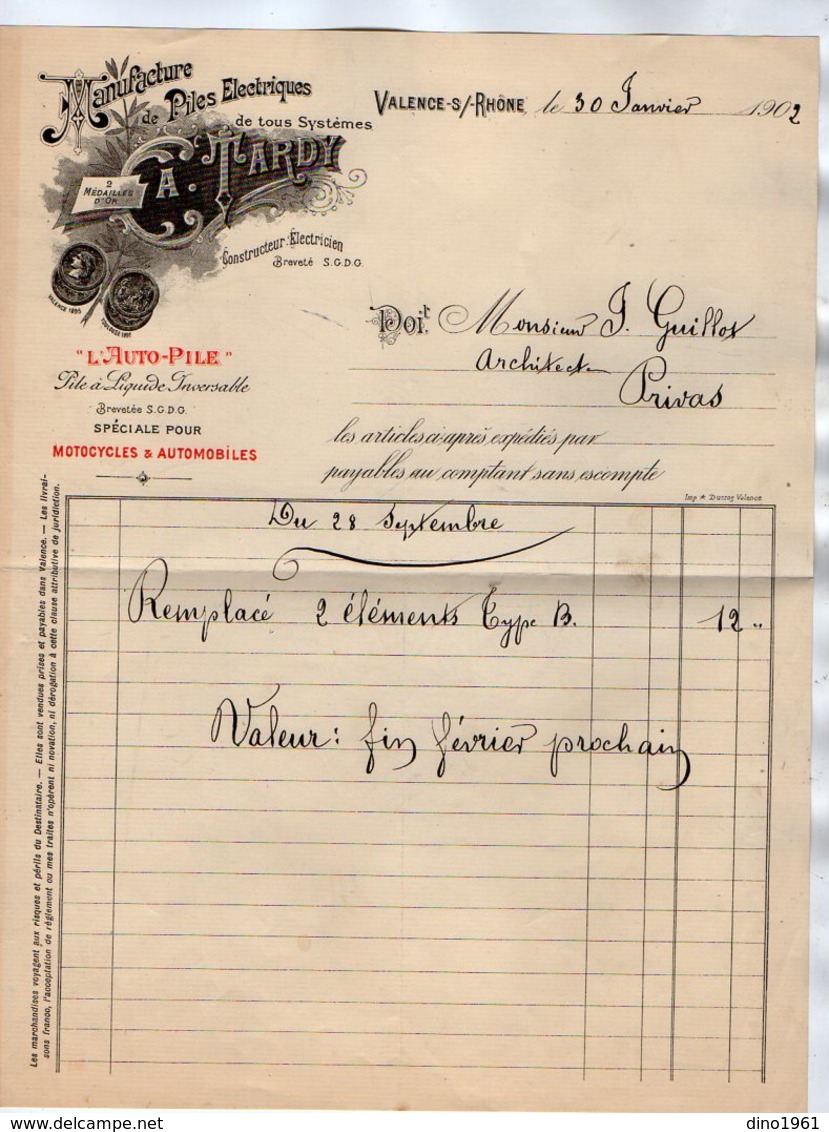 Manufacture
de Piles Electriques
de tous Systèmes
A. TARDY
2
MÉDAILLES
D'OR
Constructeur-Électricien
Breveté S.G.D.G.
VALENCE 1895
VALENCE-S/-RHÔNE, le 30 Janvier 1902
Doit Monsieur J. Guillot
Architecte
Privas
"L'AUTO-PILE"
Pile à Liquide Inversable
Brevetée S.G.D.G.
SPÉCIALE POUR
MOTOCYCLES & AUTOMOBILES
les articles ci-après expédiés par
payables au comptant sans escompte
Imp ★ Ducros Valence
Du 28 Septembre
Remplacé 2 éléments Type B. 12 "
Valeur: fin février prochain
Les marchandises voyagent aux risques et périls du Destinataire. — Elles sont vendues prises et payables dans Valence. — Les livrai-
sons franco, l'acceptation de règlement ou mes traites n'opèrent ni novation, ni dérogation à cette clause attributive de juridiction.
dino1961